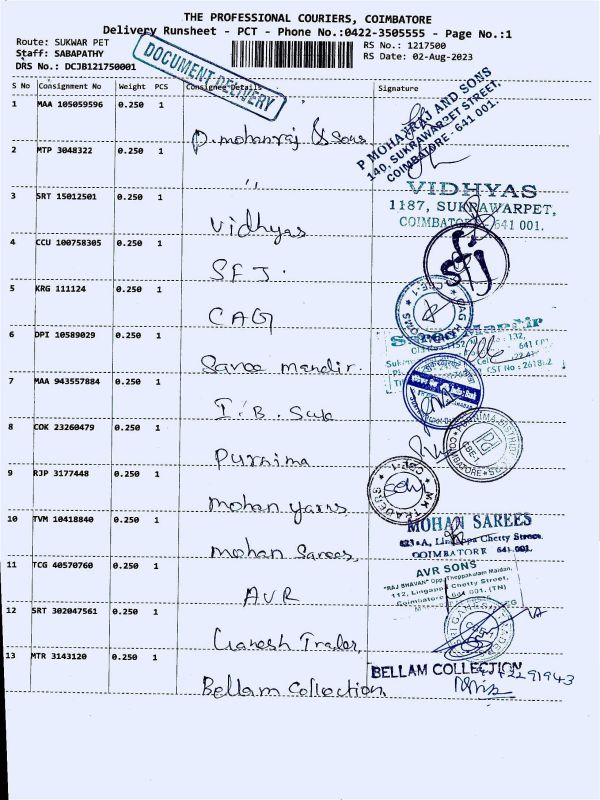 THE PROFESSIONAL COURIERS, COIMBATORE
Delivery Runsheet - PCT - Phone No.:0422-3505555 - Page No.:1
Route: SUKWAR PET
RS No.: 1217500
Staff: SABAPATHY
RS Date: 02-Aug-2023
DRS No.: DCJB121750001
DOCUMENT DELIVERY
S No Consignment No Weight PCS Consignee Details Signature
1 MAA 105059596 0.250 1
P. mohanraj & Sons
P MOHANRAJ AND SONS
140, SUKRAWARPET STREET,
COIMBATORE - 641 001.
2 MTP 3048322 0.250 1
"
3 SRT 15012501 0.250 1
Vidhyas
VIDHYAS
1187, SUKRAWARPET,
COIMBATORE-641 001.
4 CCU 100758305 0.250 1
SFJ.
SFJ
5 KRG 111124 0.250 1
CAG
6 DPI 10589029 0.250 1
Saree mandir.
CST No : 2618
7 MAA 943557884 0.250 1
I.B. Sup
8 COK 23260479 0.250 1
Purnima
9 RJP 3177448 0.250 1
mohan yarns
MK TRADERS
10 TVM 10418840 0.250 1
mohan Sarees
MOHAN SAREES
623-A, Lingappa Chetty Street,
COIMBATORE 641 001.
11 TCG 40570760 0.250 1
AVR
AVR SONS
"RAJ BHAVAN" Opp. Theppakulam Maidan,
112, Lingappa Chetty Street,
Coimbatore - 641 001. (TN)
12 SRT 302047561 0.250 1
Ganesh Trader,
13 MTR 3143120 0.250 1
Bellam Collection
BELLAM COLLECTION